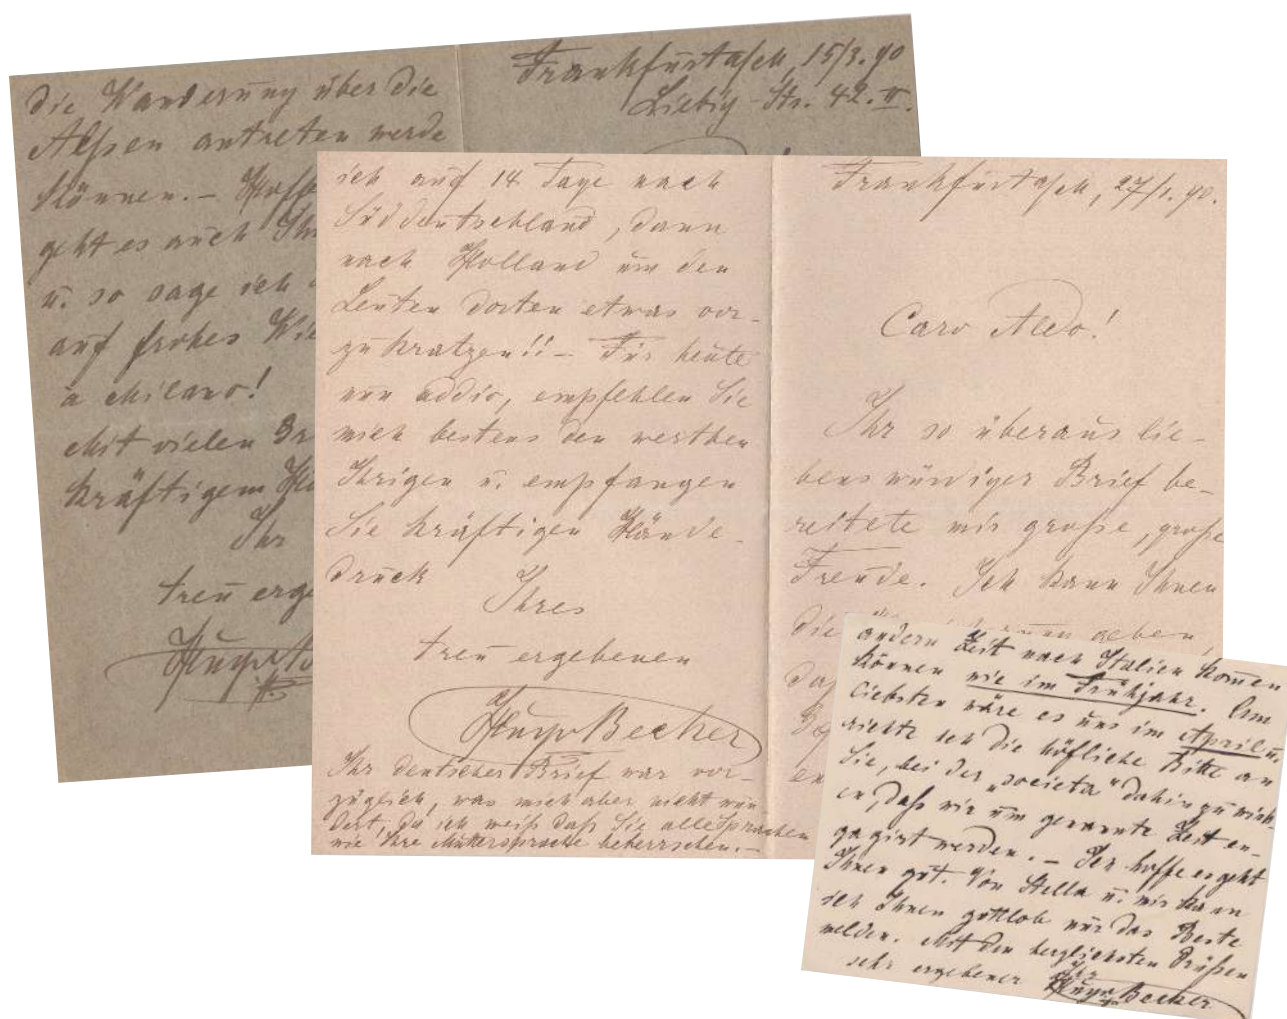 die Wanderung über die
Alpen antreten werde
können. – Hoff
geht es auch Ihn
u. so sage ich
auf frohes Wie
a Milano!
Mit vielen Gr
kräftigem Hä
Ihr
treu erge
Hugo
Frankfurt a/M, 15/3. 90
Liebig-Str. 42. II.
ich auf 14 Tage nach
Süddeutschland, dann
nach Holland um den
Leuten dorten etwas vor-
zukratzen!! – Für heute
nun addio, empfehlen Sie
mich bestens den werthen
Ihrigen u. empfangen
Sie kräftigen Hände-
druck
Ihres
treu ergebenen
Hugo Becker
Ihr deutscher Brief war vor-
züglich, was mich aber nicht wun-
dert, da ich weiß daß Sie alle Sprachen
wie Ihre Muttersprache beherrschen. –
Frankfurt a/M, 27/1. 90.
Caro Aldo!
Ihr so überaus lie-
benswürdiger Brief be-
reitete mir große, große
Freude. Ich kann Ihnen
die geben,
daß
en
andern Zeit nach Italien komen
können wie im Frühjahr. Am
liebsten wäre es uns im April u.
richte ich die höfliche Bitte an
Sie, bei der „societa" dahin zu wirk-
en, daß wir um genannte Zeit en-
gagirt werden. – Ich hoffe es geht
Ihnen gut. Von Stella u. mir kann
ich Ihnen gottlob nur das Beste
melden. Mit den herzlichsten Grüßen
Ihr
sehr ergebener Hugo Becker